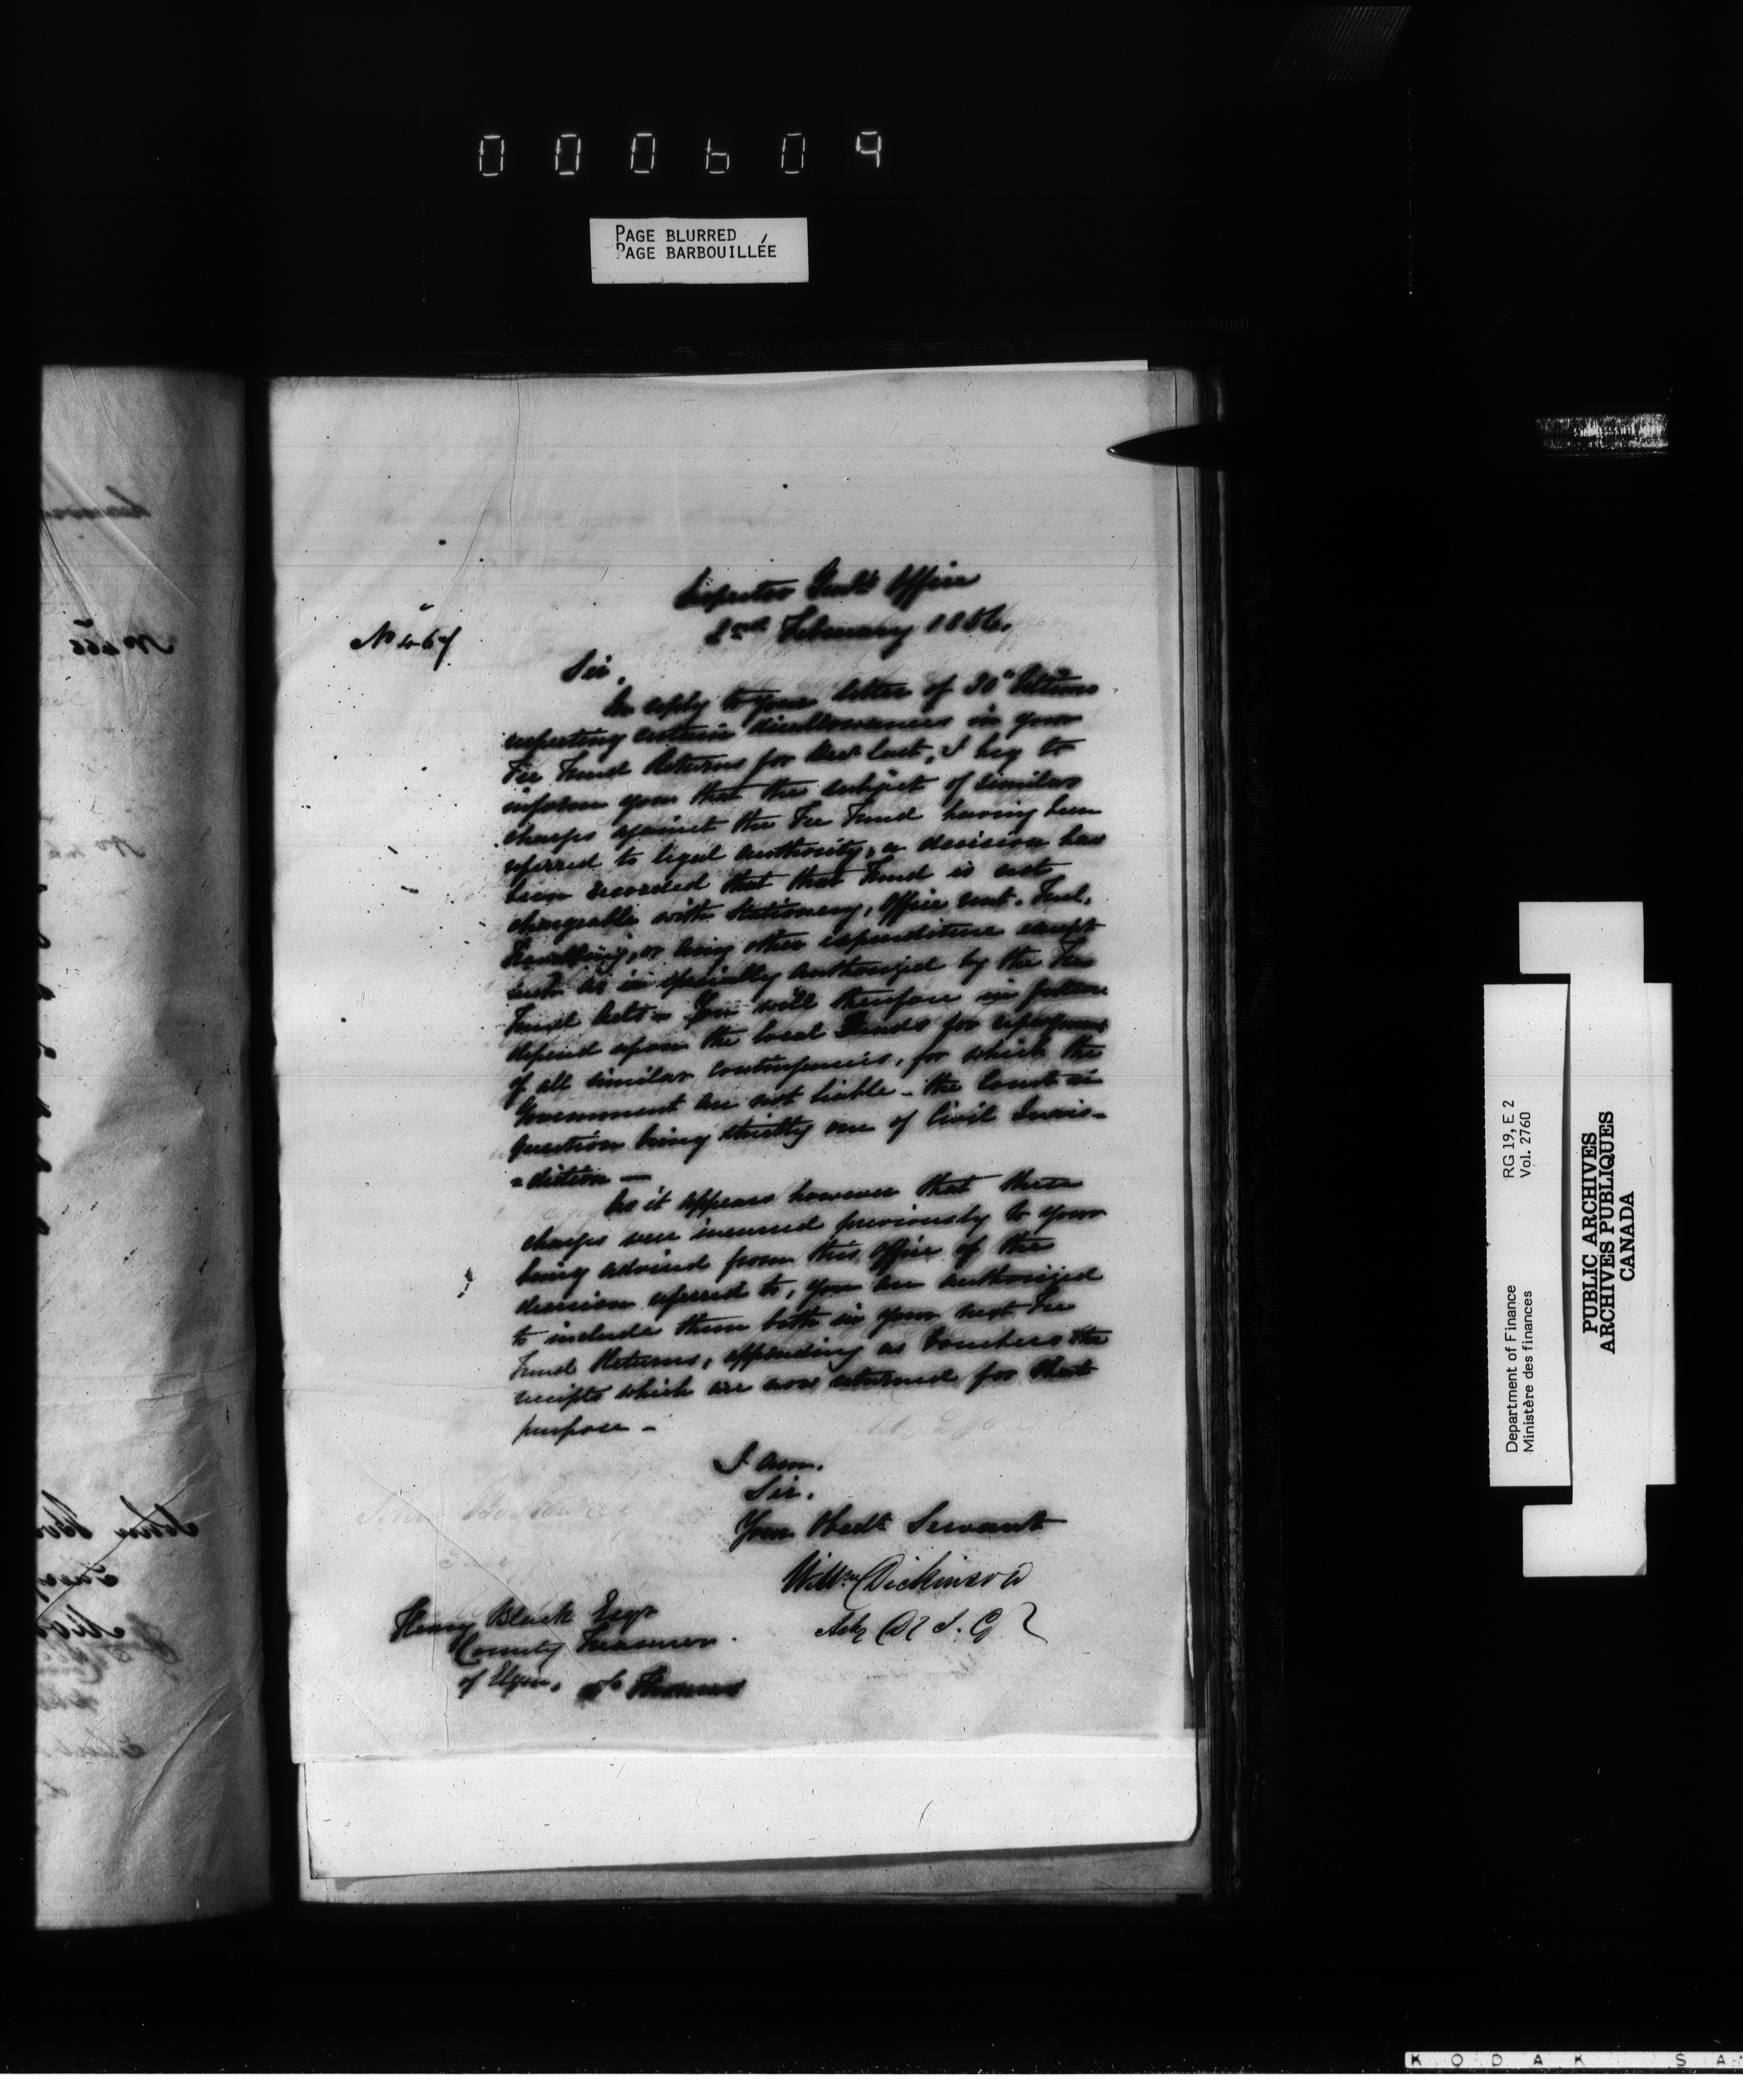 000609
PAGE BLURRED
PAGE BARBOUILLÉE
Inspector Genl's Office
2nd February 1856.
No 467
Sir,
In reply to your letter of 30" Ultimo
respecting certain disallowances in your
Fee Fund Returns for Decr last, I beg to
inform you that the subject of similar
charges against the Fee Fund having been
referred to legal authority, a decision has
been recorded that that Fund is not
chargeable with Stationery, Office rent, Fuel,
or any other expenditure except
such as is specially authorized by the Fee
Fund Acts - You will therefore in future
depend upon the local Funds for repayment
of all similar contingencies, for which the
Government are not liable - the Court in
question being strictly one of Civil Juris-
=diction —
As it appears however that these
charges were incurred previously to your
being advised from this Office of the
decision referred to, you are authorized
to include them both in your next Fee
Fund Returns, appending as Vouchers the
receipts which are now returned for that
purpose -
I am,
Sir,
Your Obedt Servant
Willm Dickinson
Actg D I. G
Henry Black Esqr
County Treasurer
of Elgin, St Thomas
No 466
Department of Finance
Ministère des finances
RG 19, E 2
Vol. 2760
PUBLIC ARCHIVES
ARCHIVES PUBLIQUES
CANADA
KODAK SA